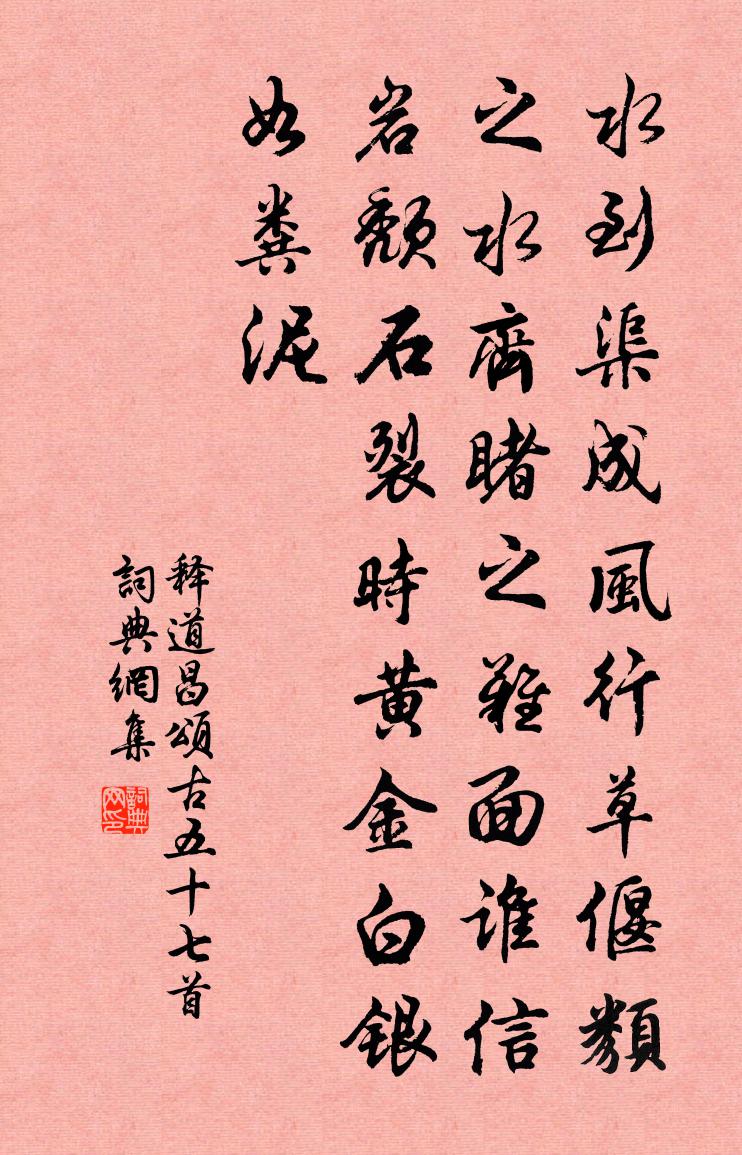 水到渠成風行草偃類
之水齊睹之難面誰信
岩頽石裂時黃金白銀
如糞泥
释道昌頌古五十七首
詞典網集
詞典网印